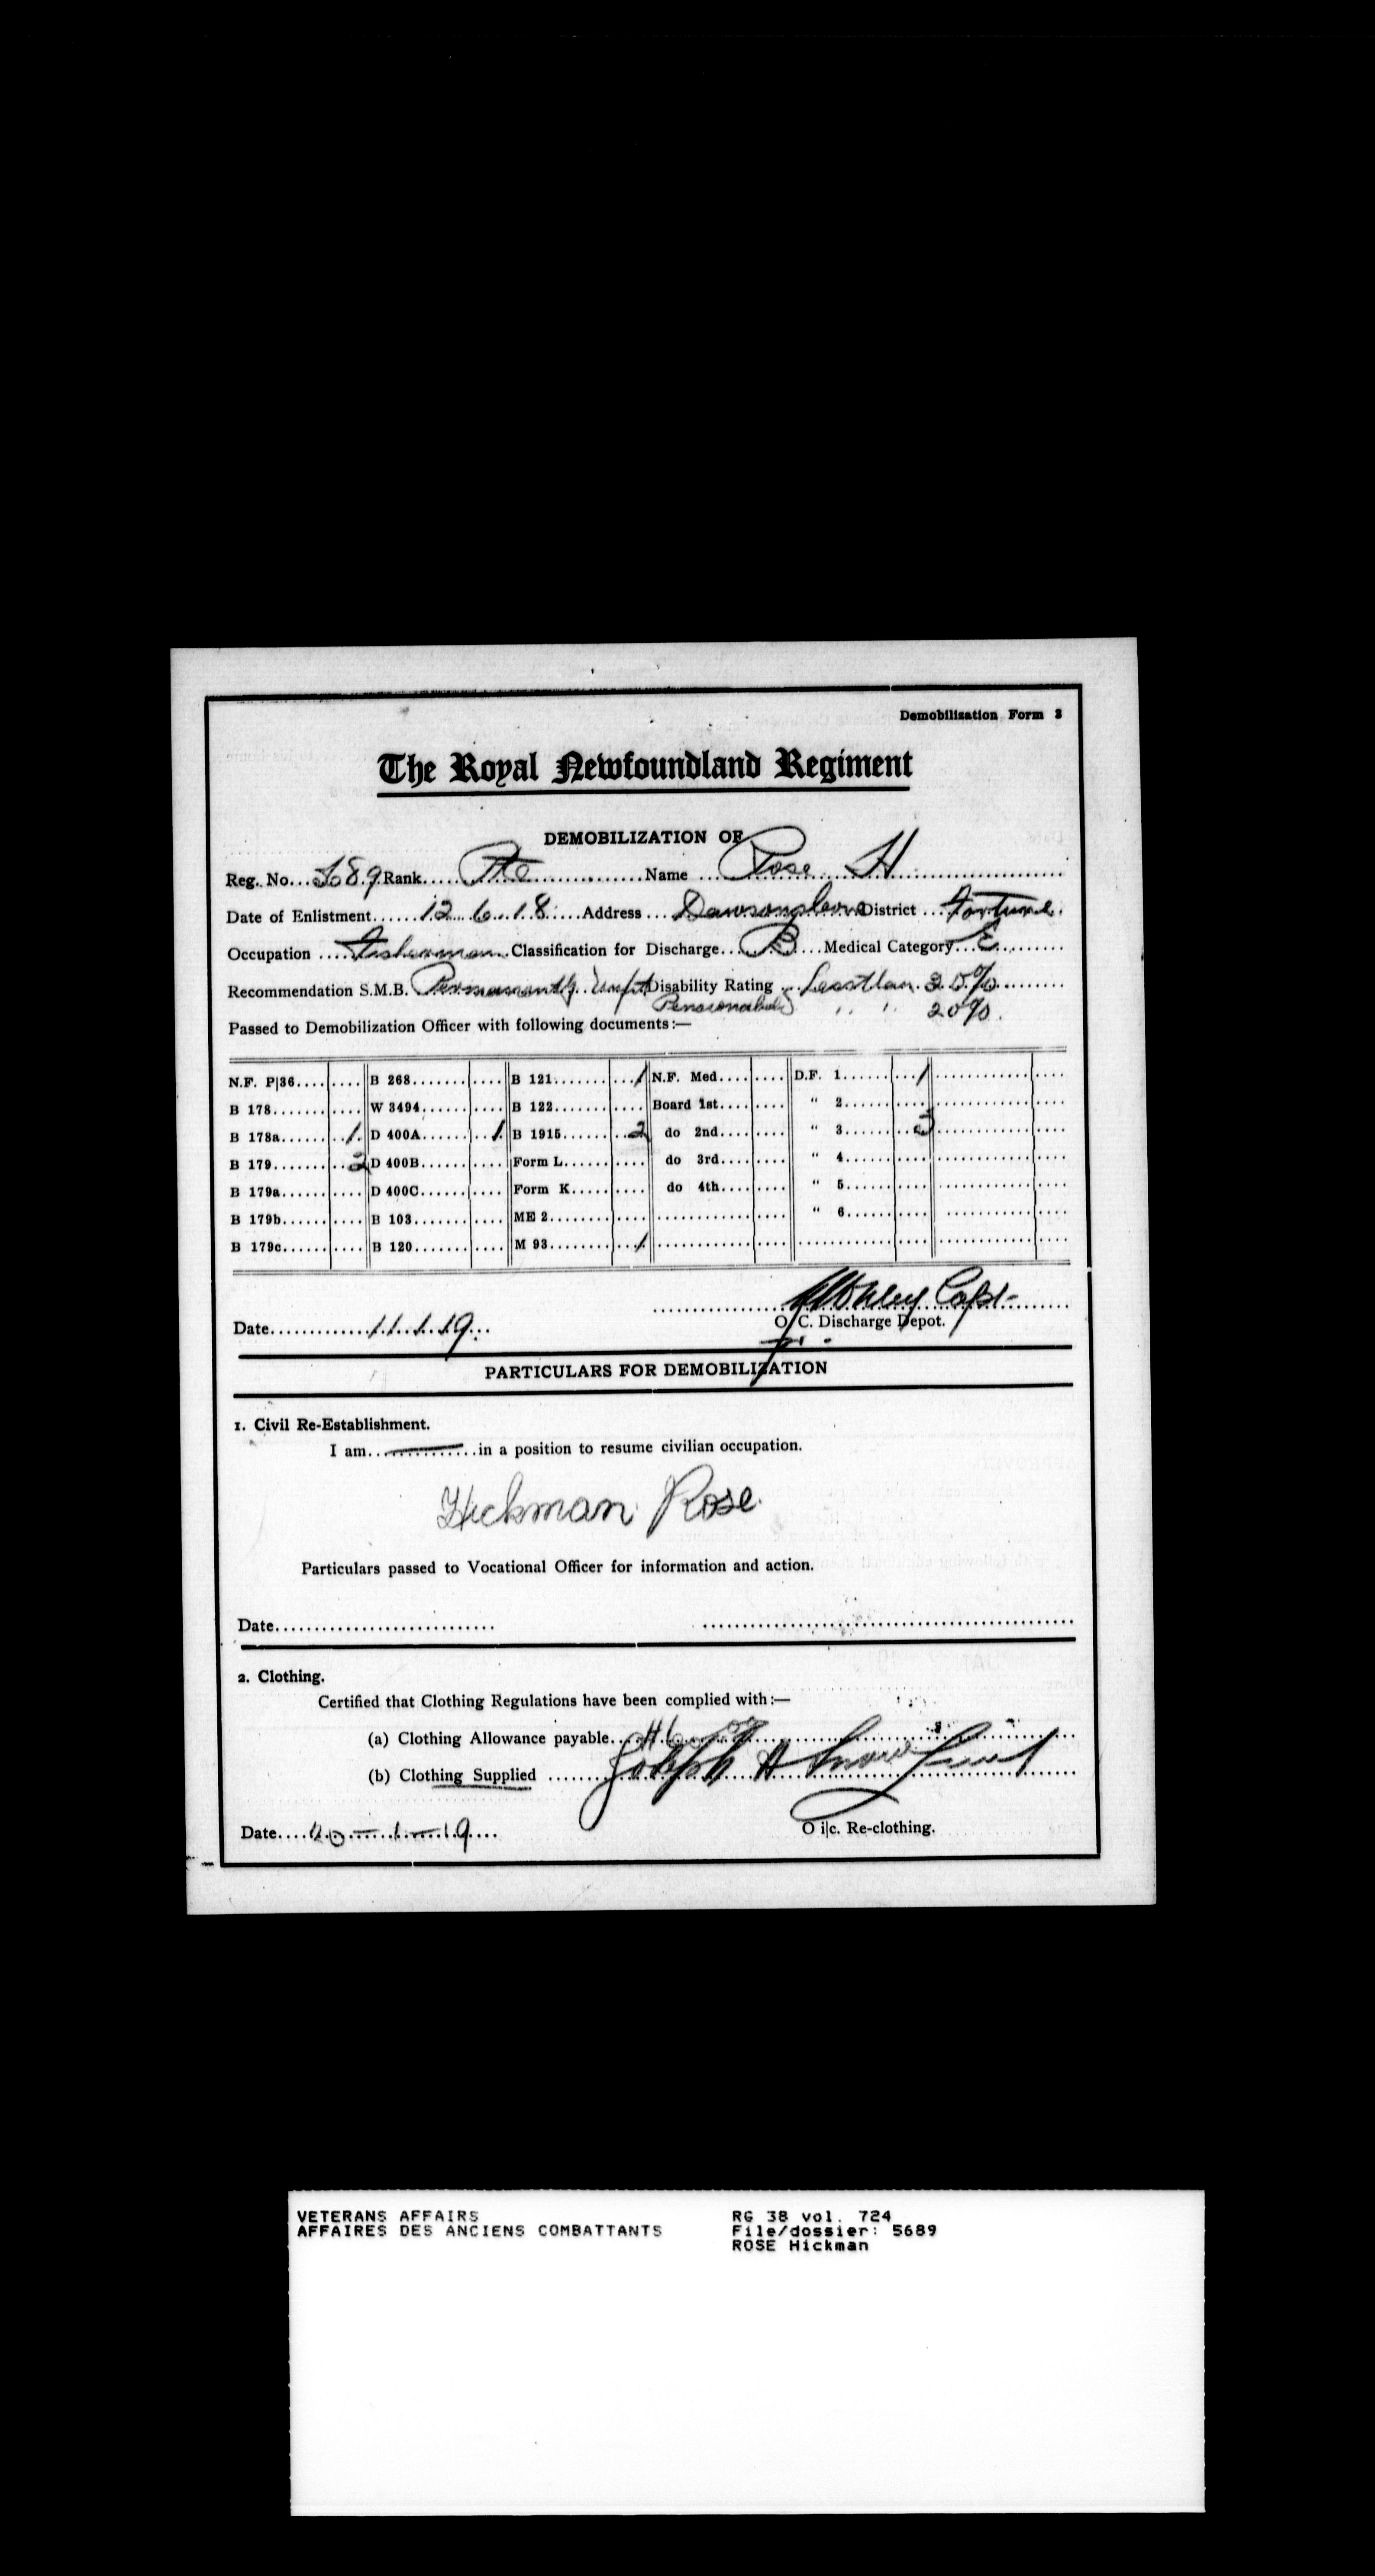 Demobilization Form 3
The Royal Newfoundland Regiment
DEMOBILIZATION OF
Reg. No... 5689 Rank..... Pte ..............Name ... Rose H
Date of Enlistment...... 12.6.18 ....Address ... District ... Fortune.
Occupation .... Fisherman Classification for Discharge... B ....Medical Category... E
Recommendation S.M.B. Permanently Unfit Disability Rating ... Less than 20%
Pensionable " " 20%.
Passed to Demobilization Officer with following documents:—
N.F. P|36.... B 268....... B 121........ 1 N.F. Med.... D.F. 1....... 1
B 178........ W 3494...... B 122........ Board 1st.... " 2.......
B 178a....... 1. D 400A...... 1. B 1915....... 2 do 2nd.... " 3....... 3
B 179........ 2 D 400B...... Form L....... do 3rd.... " 4.......
B 179a....... D 400C...... Form K...... do 4th.... " 5.......
B 179b....... B 103....... ME 2......... " 6.......
B 179c....... B 120....... M 93......... 1
Capt-
Date............. 11.1.19 ...
O/C. Discharge Depot.
PARTICULARS FOR DEMOBILIZATION
1. Civil Re-Establishment.
I am..............in a position to resume civilian occupation.
Hickman Rose
Particulars passed to Vocational Officer for information and action.
Date............................
2. Clothing.
Certified that Clothing Regulations have been complied with:—
(a) Clothing Allowance payable..
(b) Clothing Supplied ....... Joseph A
Date.... — 1 — 19....
O i|c. Re-clothing.
VETERANS AFFAIRS
AFFAIRES DES ANCIENS COMBATTANTS
RG 38 vol. 724
File/dossier: 5689
ROSE Hickman